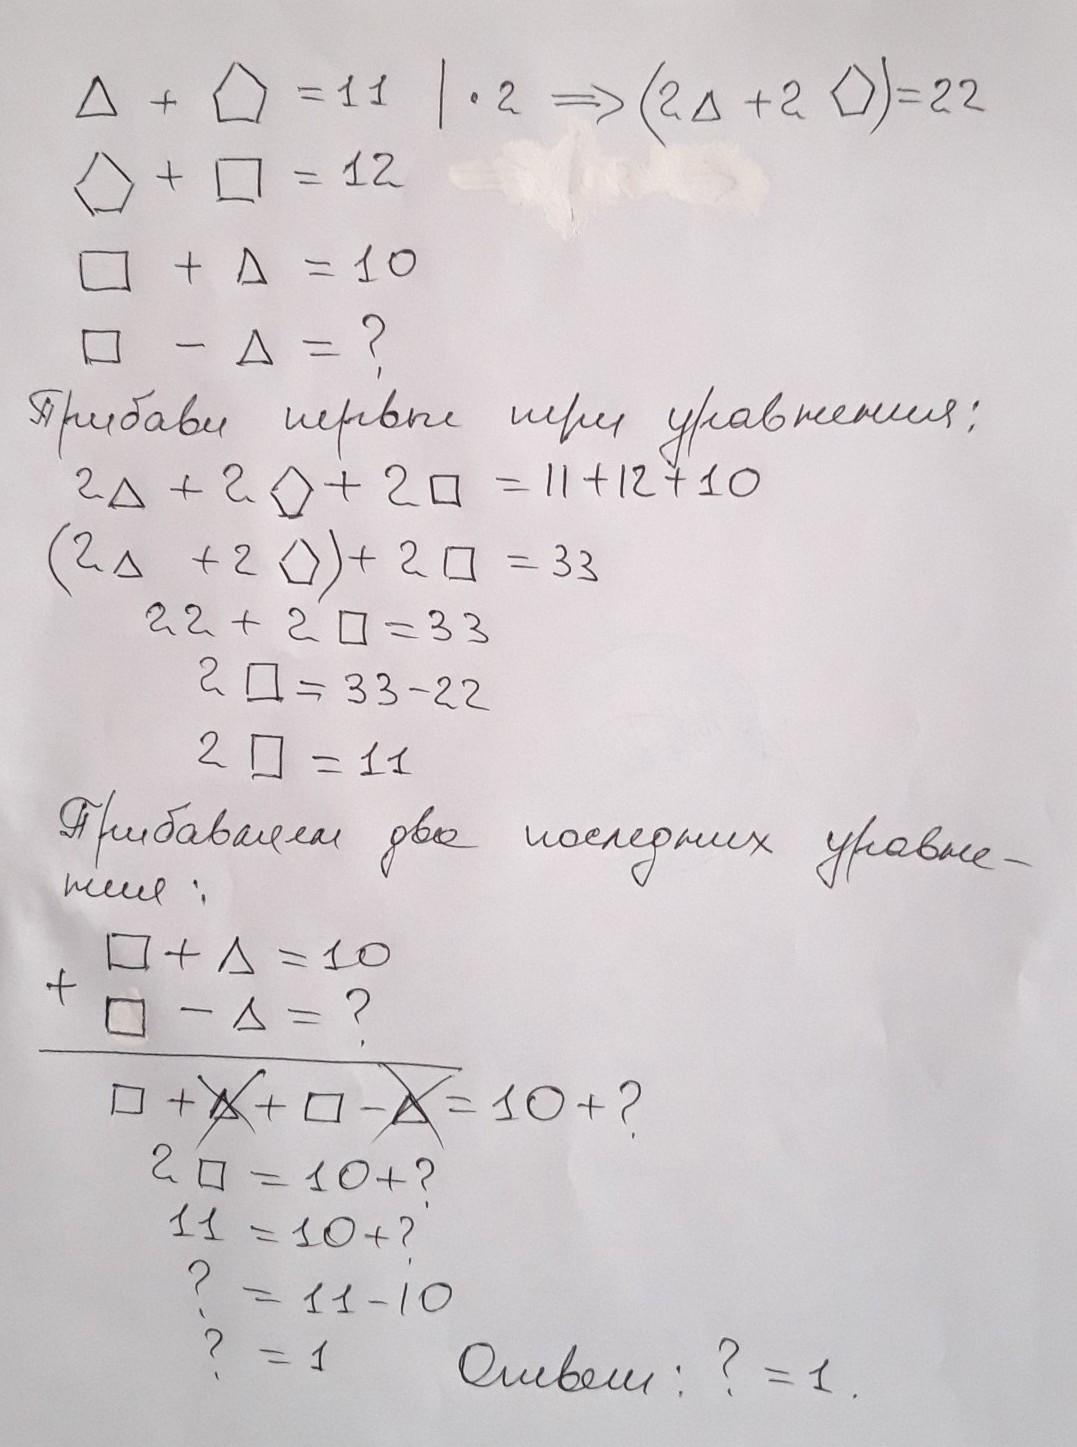 △ + ⬠ = 11 | · 2 ⟹ (2△ + 2⬠) = 22
⬠ + □ = 12
□ + △ = 10
□ − △ = ?
Прибави первые три уравнения:
2△ + 2⬠ + 2□ = 11 + 12 + 10
(2△ + 2⬠) + 2□ = 33
22 + 2□ = 33
2□ = 33 − 22
2□ = 11
Прибавляем два последних уравне-
ния:
□ + △ = 10
+
□ − △ = ?
□ + △ + □ − △ = 10 + ?
2□ = 10 + ?
11 = 10 + ?
? = 11 − 10
? = 1 Ответ: ? = 1.